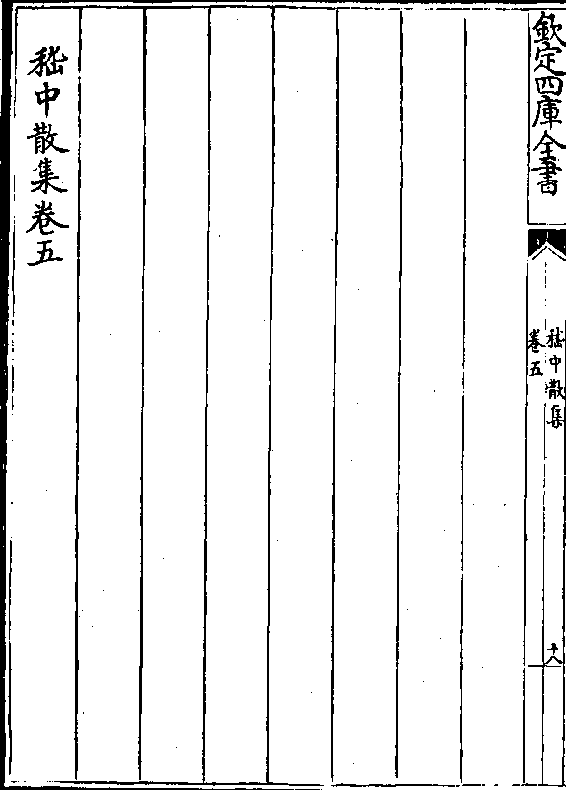 欽定四庫全書
嵇中散集
卷五
十八
嵇中散集卷五